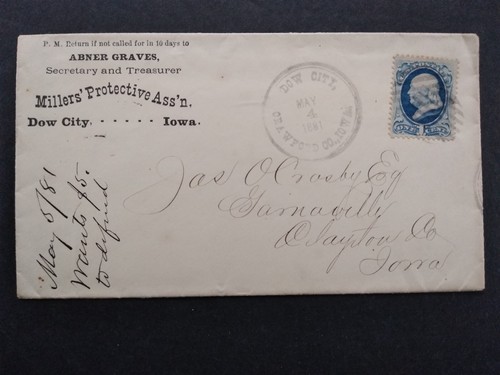 P. M. Return if not called for in 10 days to
ABNER GRAVES,
Secretary and Treasurer
Millers' Protective Ass'n.
Dow City, - - - - - Iowa.
DOW CITY,
MAY
4
1881
CRAWFORD CO., IOWA.
ONE CENT
Jas O Crosby Esq
Garnavillo
Clayton Co
Iowa
May 5/81
Wants $5.
to defend